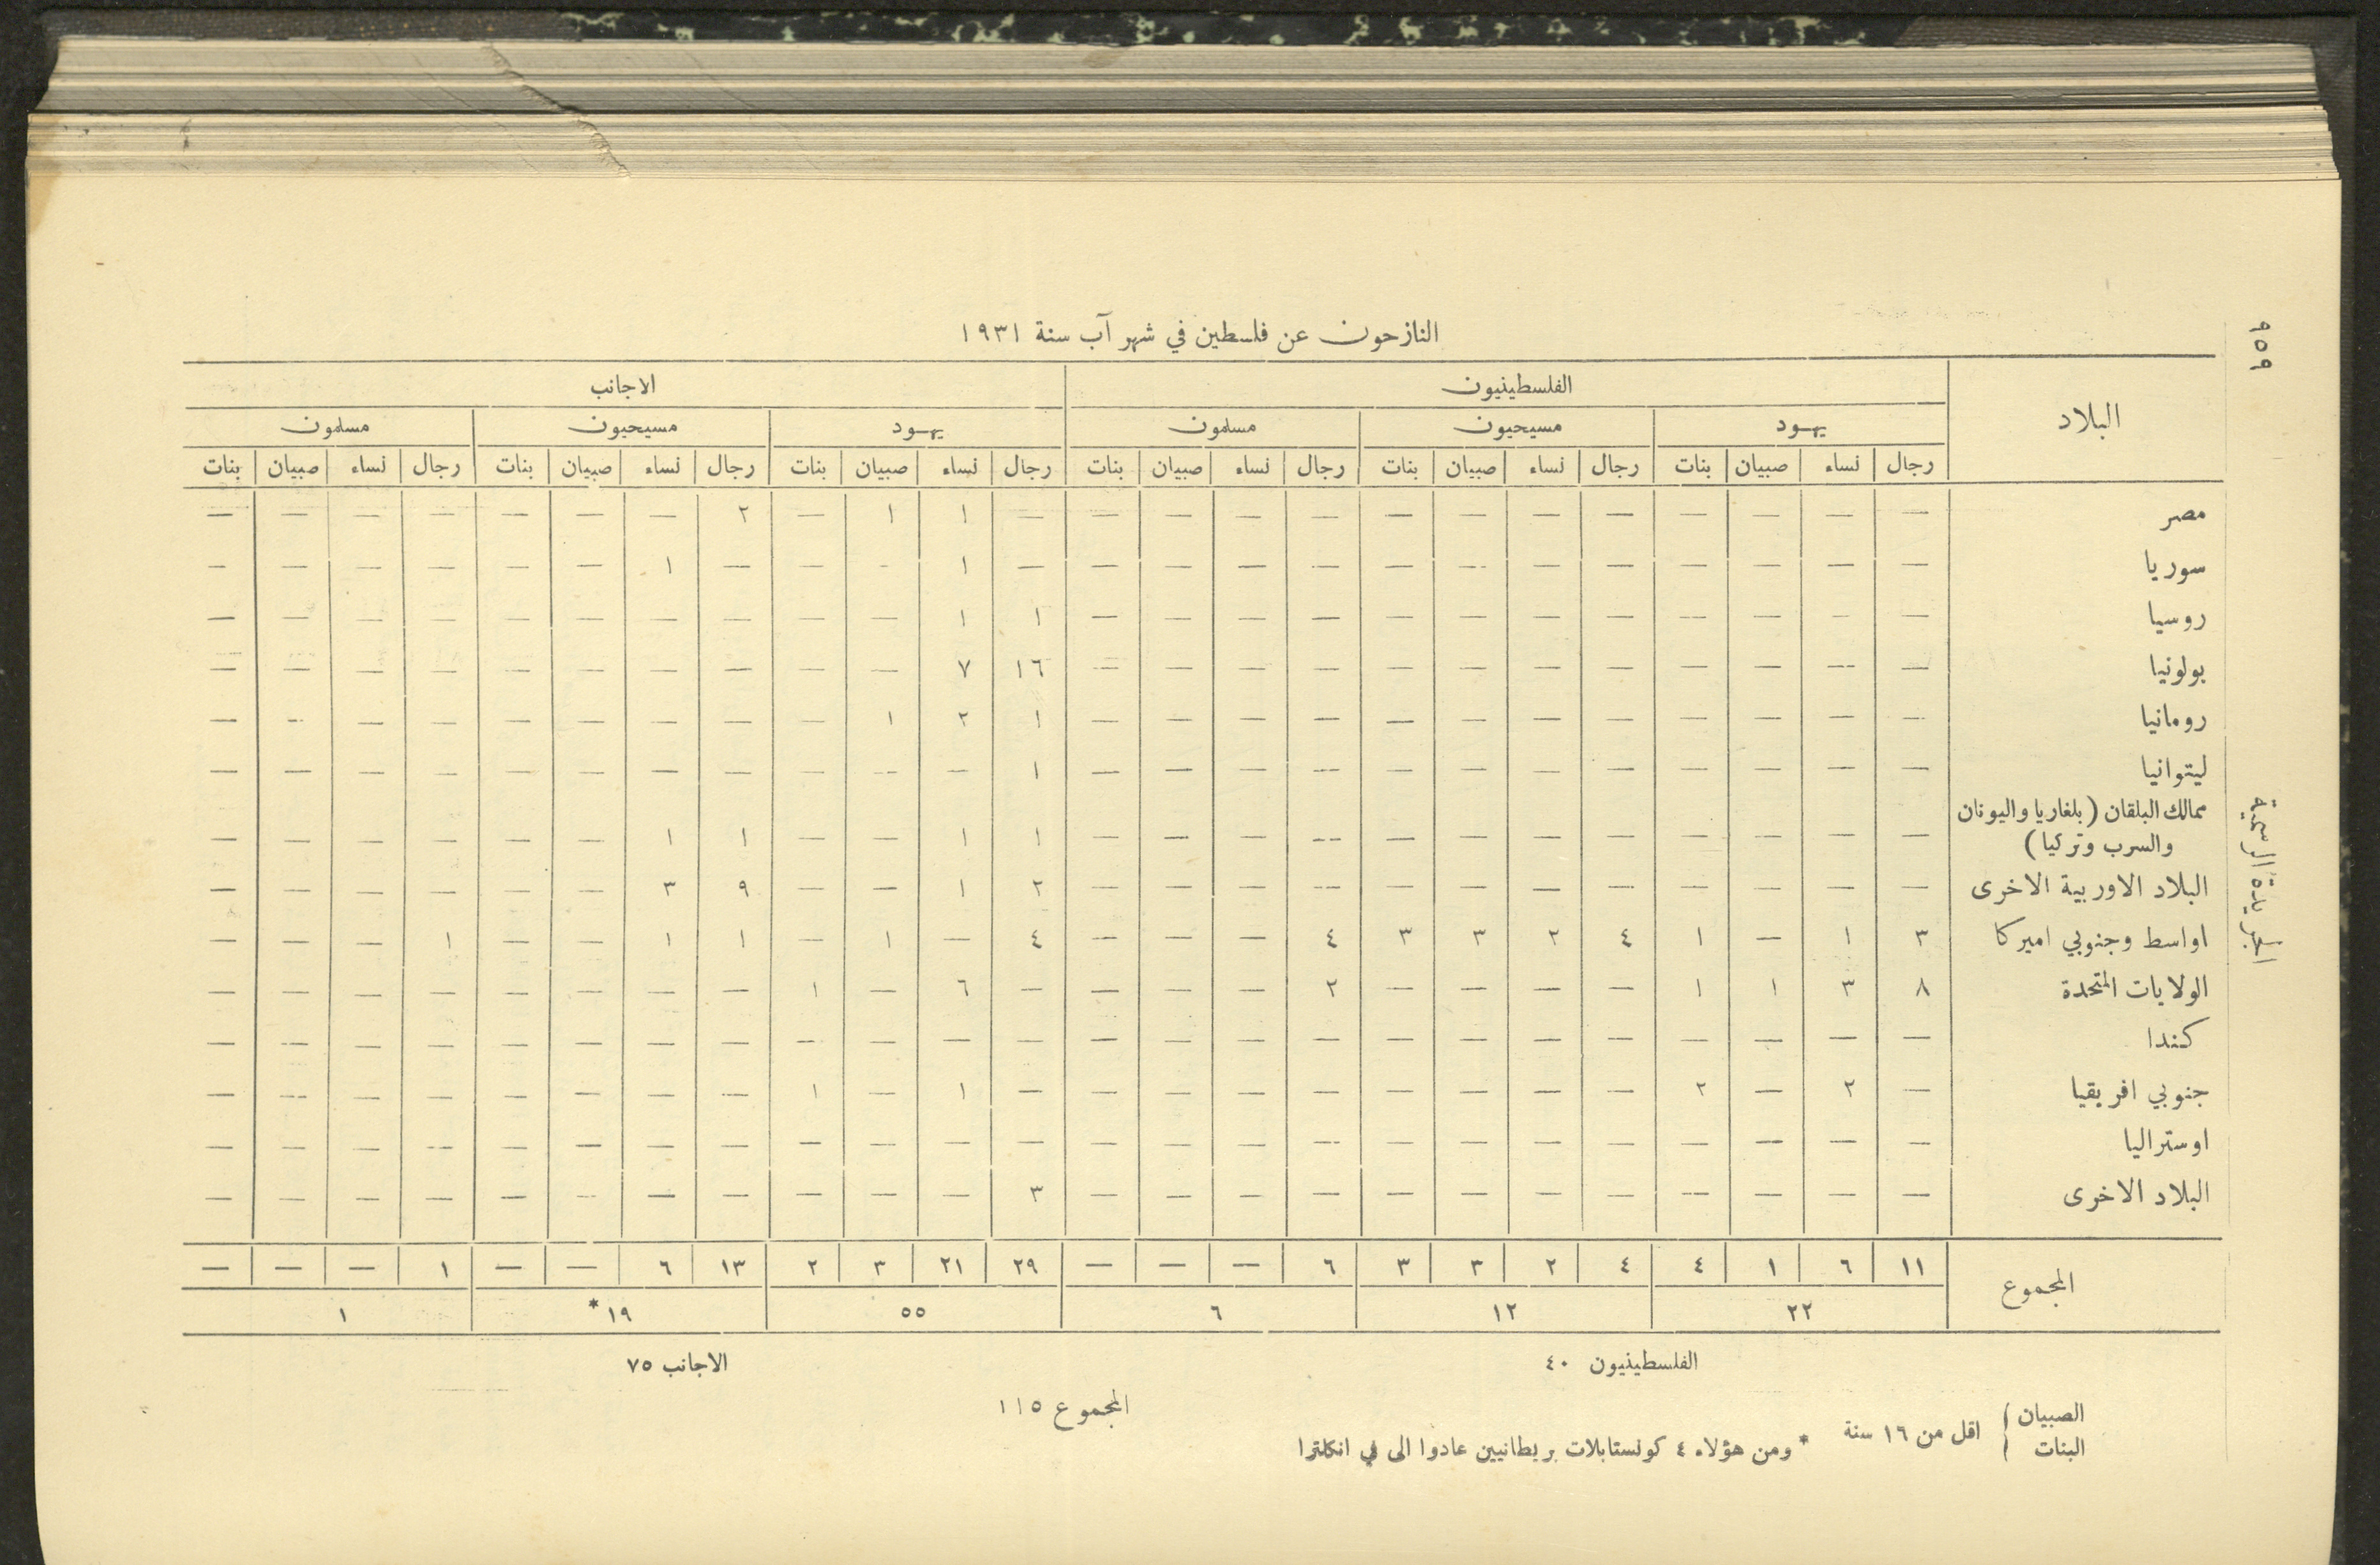 ٩٥٩
الجريدة الرسمية
النازحون عن فلسطين في شهر آب سنة ١٩٣١
البلاد | الفلسطينيون | الاجانب
يهود | مسيحيون | مسلمون | يهود | مسيحيون | مسلمون
رجال | نساء | صبيان | بنات | رجال | نساء | صبيان | بنات | رجال | نساء | صبيان | بنات | رجال | نساء | صبيان | بنات | رجال | نساء | صبيان | بنات | رجال | نساء | صبيان | بنات
مصر — — — — — — — — — — — — — ١ ١ — ٢ — — — — — — —
سوريا — — — — — — — — — — — — — ١ — — — ١ — — — — — —
روسيا — — — — — — — — — — — — ١ ١ — — — — — — — — — —
بولونيا — — — — — — — — — — — — ١٦ ٧ — — — — — — — — — —
رومانيا — — — — — — — — — — — — ١ ٢ ١ — — — — — — — — —
ليتوانيا — — — — — — — — — — — — ١ — — — — — — — — — — —
ممالك البلقان (بلغاريا واليونان
والسرب وتركيا) — — — — — — — — — — — — ١ ١ — — ١ ١ — — — — — —
البلاد الاوربية الاخرى — — — — — — — — — — — — ٢ ١ — — ٩ ٣ — — — — — —
اواسط وجنوبي اميركا ٣ ١ — ١ ٤ ٢ ٣ ٣ ٤ — — — ٤ — ١ — ١ ١ — — ١ — — —
الولايات المتحدة ٨ ٣ ١ ١ — — — — ٢ — — — — ٦ — ١ — — — — — — — —
كندا — — — — — — — — — — — — — — — — — — — — — — — —
جنوبي افريقيا — ٢ — ٢ — — — — — — — — — ١ — ١ — — — — — — — —
اوستراليا — — — — — — — — — — — — — — — — — — — — — — — —
البلاد الاخرى — — — — — — — — — — — — ٣ — — — — — — — — — — —
المجموع ١١ ٦ ١ ٤ ٤ ٢ ٣ ٣ ٦ — — — ٢٩ ٢١ ٣ ٢ ١٣ ٦ — — ١ — — —
٢٢ ١٢ ٦ ٥٥ ١٩* ١
الفلسطينيون ٤٠ الاجانب ٧٥
المجموع ١١٥
الصبيان
البنات
اقل من ١٦ سنة
* ومن هؤلاء ٤ كونستابلات بريطانيين عادوا الى في انكلترا